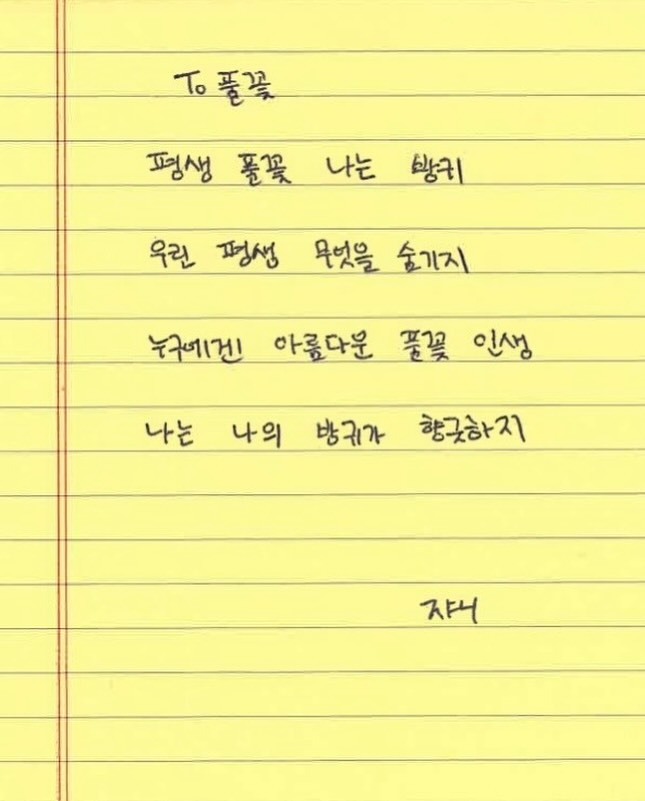 To 풀꽃
평생 풀꽃 나는 방귀
우린 평생 무엇을 숨기지
누구에겐 아름다운 풀꽃 인생
나는 나의 방귀가 향긋하지
쟈니